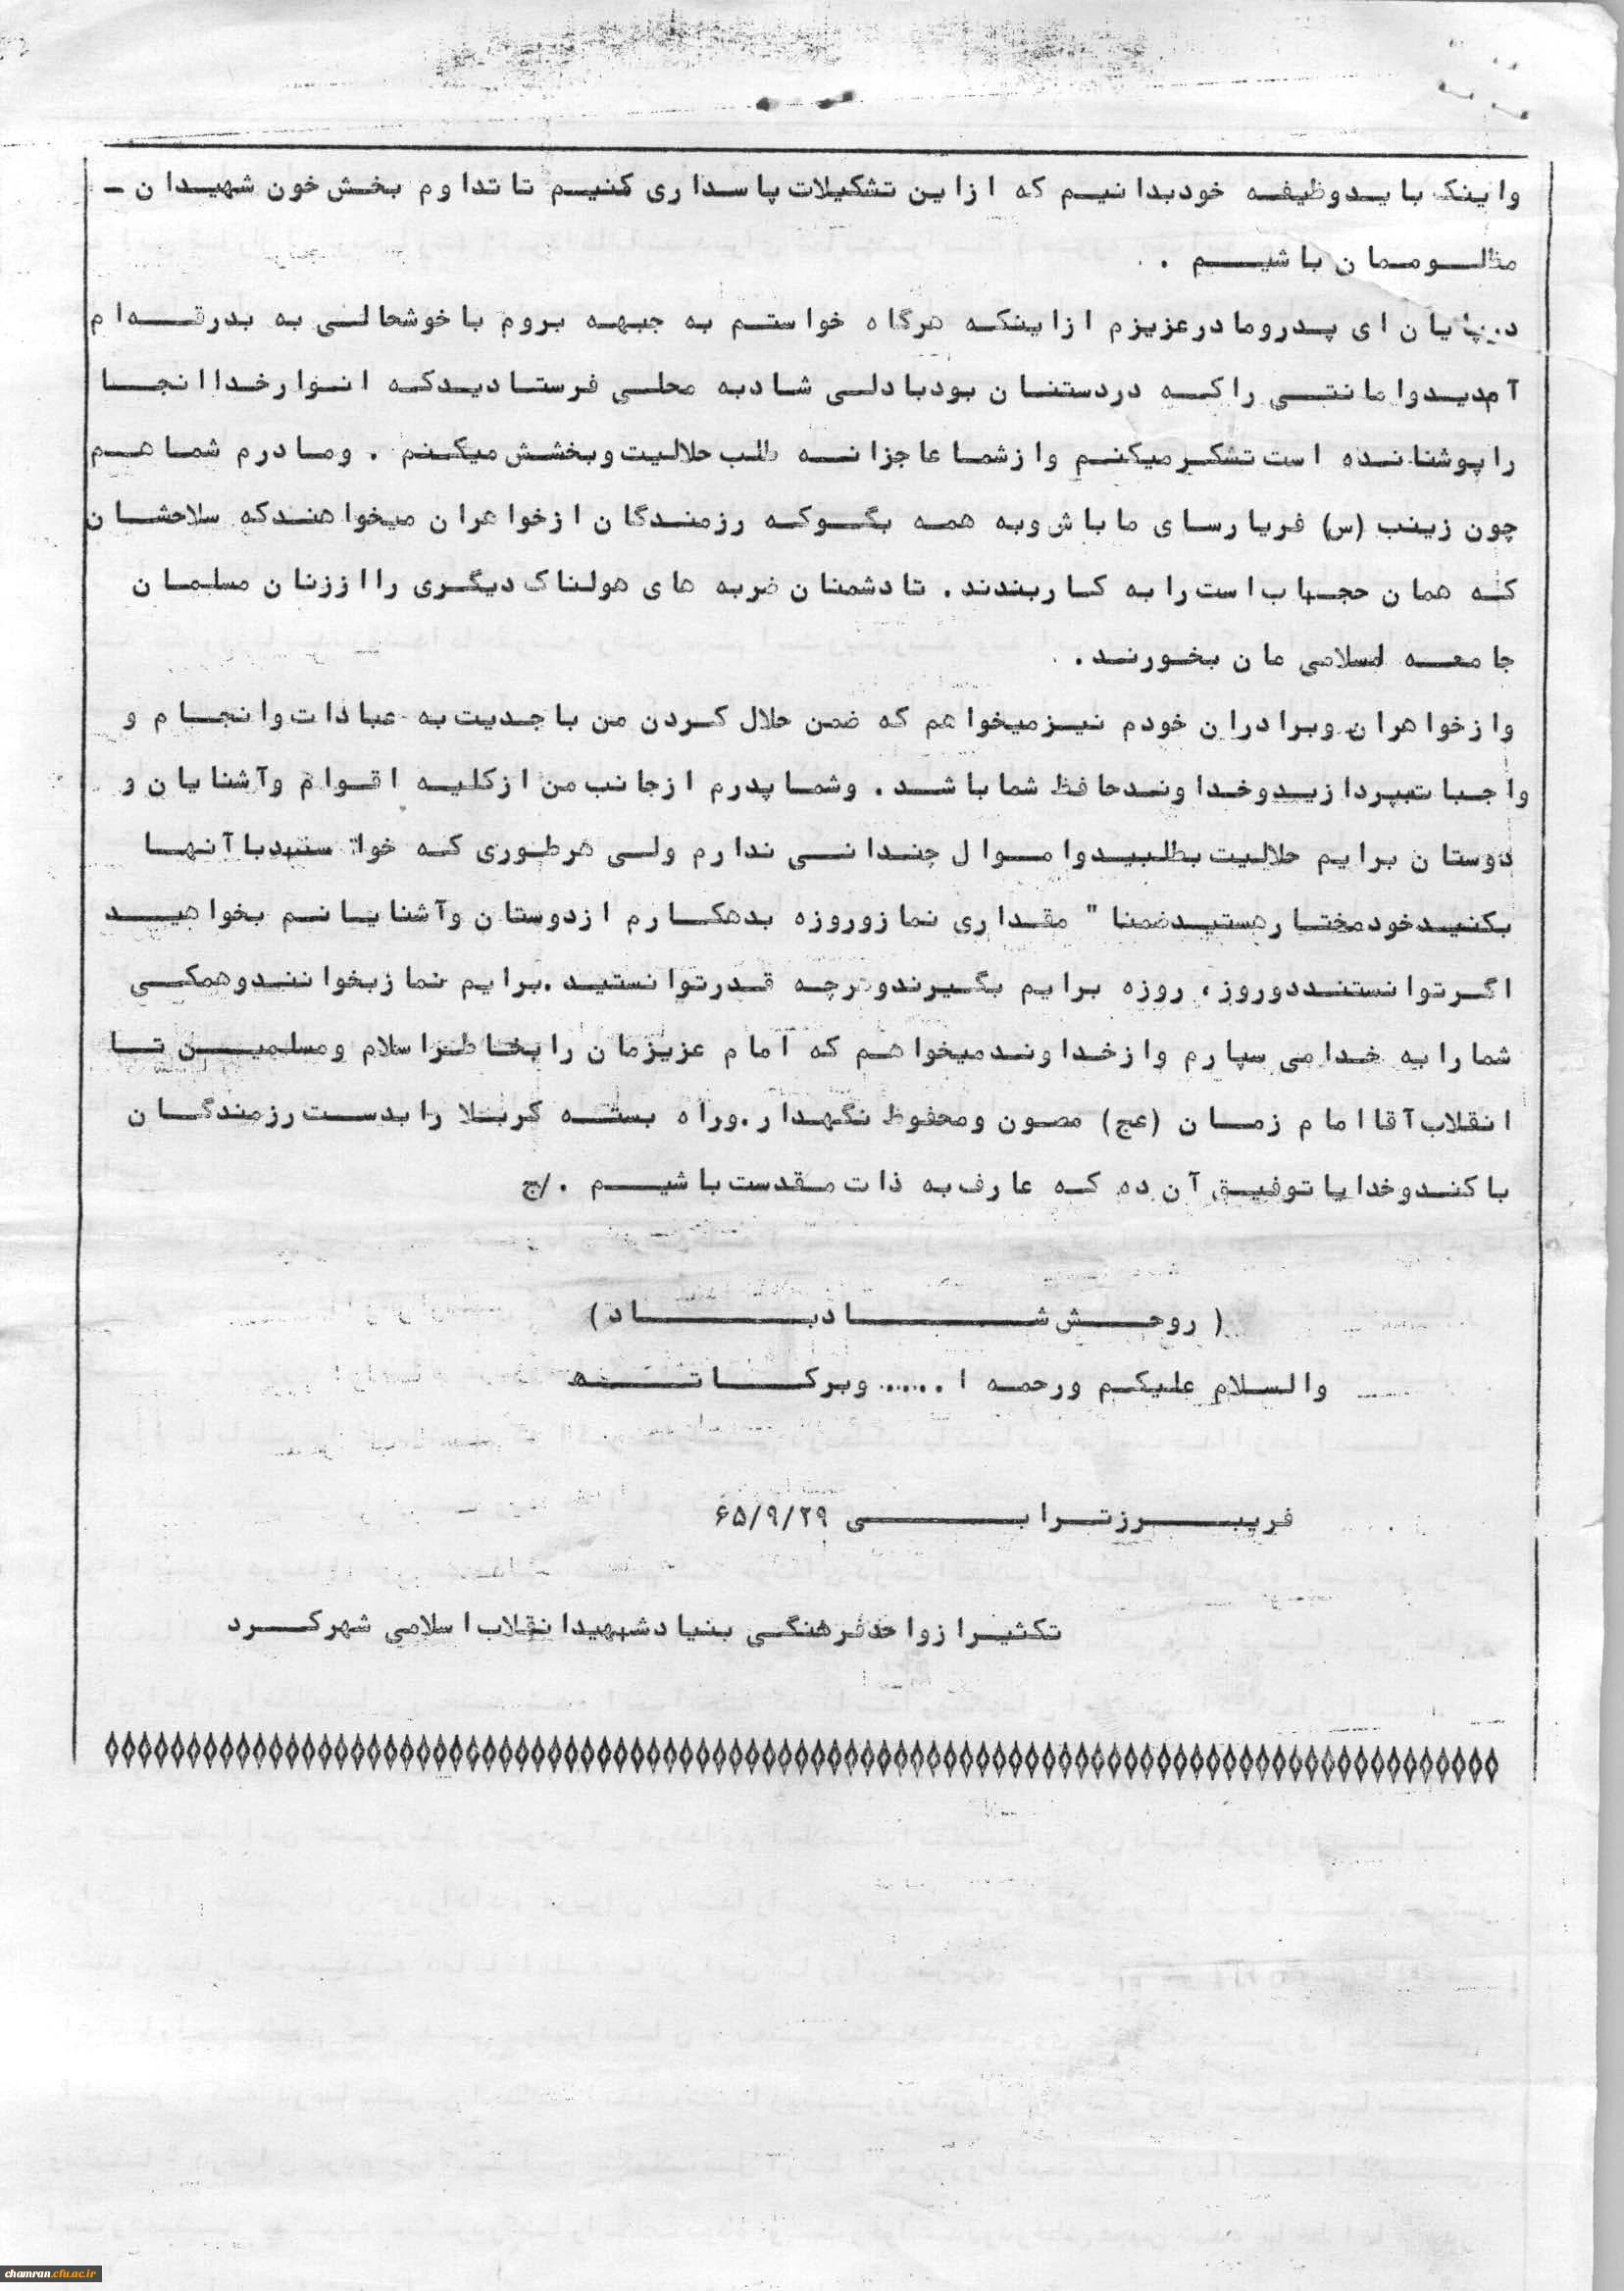 واینک باید وظیفه خود بدانیم که از این تشکیلات پاسداری کنیم تا تداوم بخش خون شهیدان ـ
مظلوممان باشیم .
در پایان ای پدر و مادر عزیزم از اینکه هرگاه خواستم به جبهه بروم با خوشحالی به بدرقه‌ام
آمدید و امانتی را که در دستتان بود با دلی شاد به محلی فرستادید که انوار خدا انجا
را پوشانده است تشکر میکنم و از شما عاجزانه طلب حلالیت و بخشش میکنم . و مادرم شما هم
چون زینب (س) فریا رسای ما باش و به همه بگو که رزمندگان از خواهران میخواهند که سلاحشان
که همان حجاب است را به کار بندند . تا دشمنان ضربه های هولناک دیگری را از زنان مسلمان
جامعه اسلامی مان بخورند .
و از خواهران و برادران خودم نیز میخواهم که ضمن حلال کردن من با جدیت به عبادات و انجام و
واجبات بپردازید و خداوند حافظ شما باشد . و شما پدرم از جانب من از کلیه اقوام و آشنایان و
دوستان برایم حلالیت بطلبید و اموال چندانی ندارم ولی هر طوری که خواستید با آنها
بکنید خود مختار هستید ضمنا " مقداری نماز و روزه بدهکارم از دوستان و آشنایانم بخواهید
اگر توانستند دو روز ، روزه برایم بگیرند و هرچه قدر توانستید . برایم نماز بخوانند و همکی
شما را به خدا می سپارم و از خداوند میخواهم که امام عزیزمان را بخاطر اسلام و مسلمین تا
انقلاب آقا امام زمان (عج) مصون و محفوظ نگهدار . و راه بسته کربلا را بدست رزمندگان
باکند و خدایا توفیق آن ده که عارف به ذات مقدست باشیم . /ج
( روحش شاد باد )
والسلام علیکم ورحمه ا ..... وبرکاته
فریبرز ترابی ۶۵/۹/۲۹
تکثیر از واحد فرهنگی بنیاد شهید انقلاب اسلامی شهرکرد
chamran.cfu.ac.ir